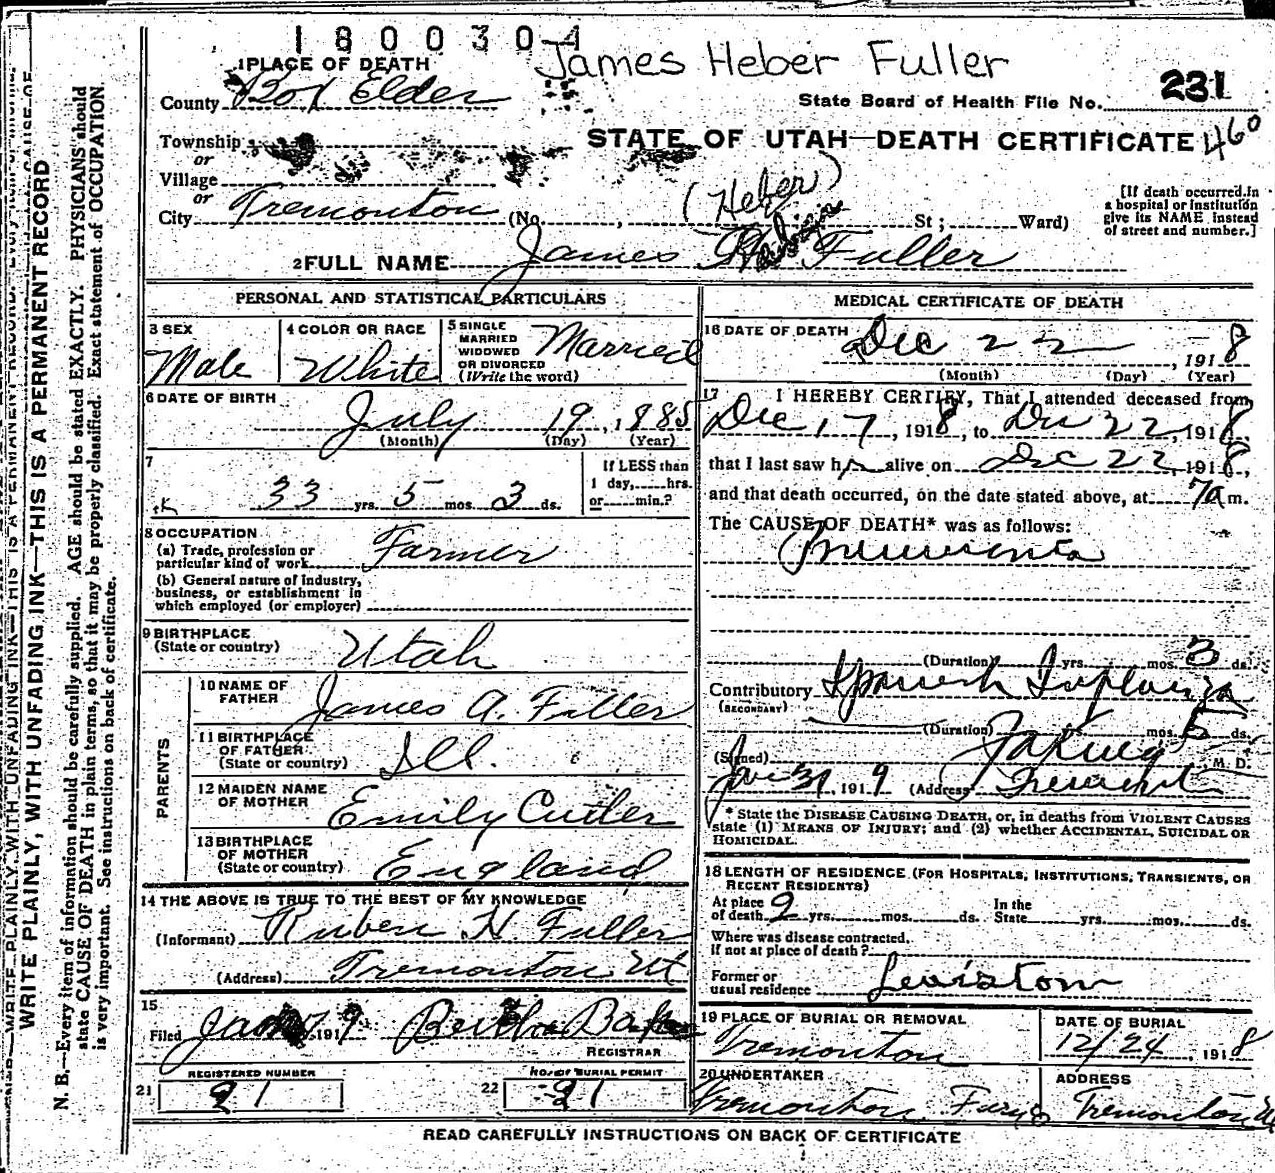 1800304
James Heber Fuller
1 PLACE OF DEATH
County Box Elder
231
State Board of Health File No.
Township
or
Village
or
City Tremonton (No. , St; Ward)
STATE OF UTAH—DEATH CERTIFICATE 460
(Heber)
[If death occurred in a hospital or institution give its NAME instead of street and number.]
2 FULL NAME James Fuller
PERSONAL AND STATISTICAL PARTICULARS
3 SEX
Male
4 COLOR OR RACE
White
5 SINGLE MARRIED WIDOWED OR DIVORCED (Write the word)
Married
6 DATE OF BIRTH
July 19, 1885
(Month) (Day) (Year)
7
33 yrs. 5 mos. 3 ds.
If LESS than 1 day, hrs. or min.?
8 OCCUPATION
(a) Trade, profession or particular kind of work Farmer
(b) General nature of industry, business, or establishment in which employed (or employer)
9 BIRTHPLACE
(State or country) Utah
PARENTS
10 NAME OF FATHER James A. Fuller
11 BIRTHPLACE OF FATHER (State or country) Ill.
12 MAIDEN NAME OF MOTHER Emily Cutler
13 BIRTHPLACE OF MOTHER (State or country) England
14 THE ABOVE IS TRUE TO THE BEST OF MY KNOWLEDGE
(Informant) Ruben H. Fuller
(Address) Tremonton Ut
15
Filed Jan 1919 Bertha
REGISTRAR
REGISTERED NUMBER
21 21
NO. OF BURIAL PERMIT
22 21
MEDICAL CERTIFICATE OF DEATH
16 DATE OF DEATH Dec 22, 1918
(Month) (Day) (Year)
17 I HEREBY CERTIFY, That I attended deceased from
Dec 17, 1918, to Dec 22, 1918,
that I last saw him alive on Dec 22 1918,
and that death occurred, on the date stated above, at 7a m.
The CAUSE OF DEATH* was as follows:
Pneumonia
(Duration) yrs. mos. 3 ds.
Contributory Spanish Influenza
(SECONDARY)
(Duration) yrs. mos. 5 ds.
(Signed) M. D.
Jan 31, 1919 (Address)
* State the DISEASE CAUSING DEATH, or, in deaths from VIOLENT CAUSES state (1) MEANS OF INJURY; and (2) whether ACCIDENTAL, SUICIDAL OR HOMICIDAL.
18 LENGTH OF RESIDENCE (FOR HOSPITALS, INSTITUTIONS, TRANSIENTS, OR RECENT RESIDENTS)
At place of death 9 yrs. mos. ds. In the State yrs. mos. ds.
Where was disease contracted, If not at place of death?
Former or usual residence Lewistom
19 PLACE OF BURIAL OR REMOVAL
Tremonton
DATE OF BURIAL
12/24, 1918
20 UNDERTAKER
Tremonton
ADDRESS
Tremonton
READ CAREFULLY INSTRUCTIONS ON BACK OF CERTIFICATE
WRITE PLAINLY, WITH UNFADING INK—THIS IS A PERMANENT RECORD
N. B.—Every item of information should be carefully supplied. AGE should be stated EXACTLY. PHYSICIANS should
state CAUSE OF DEATH in plain terms, so that it may be properly classified. Exact statement of OCCUPATION
is very important. See instructions on back of certificate.